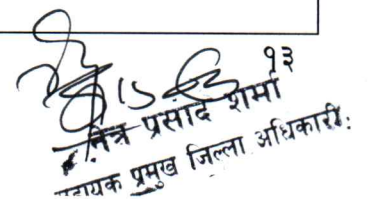 १३
नेत्र प्रसाद शर्मा
सहायक प्रमुख जिल्ला अधिकारी: